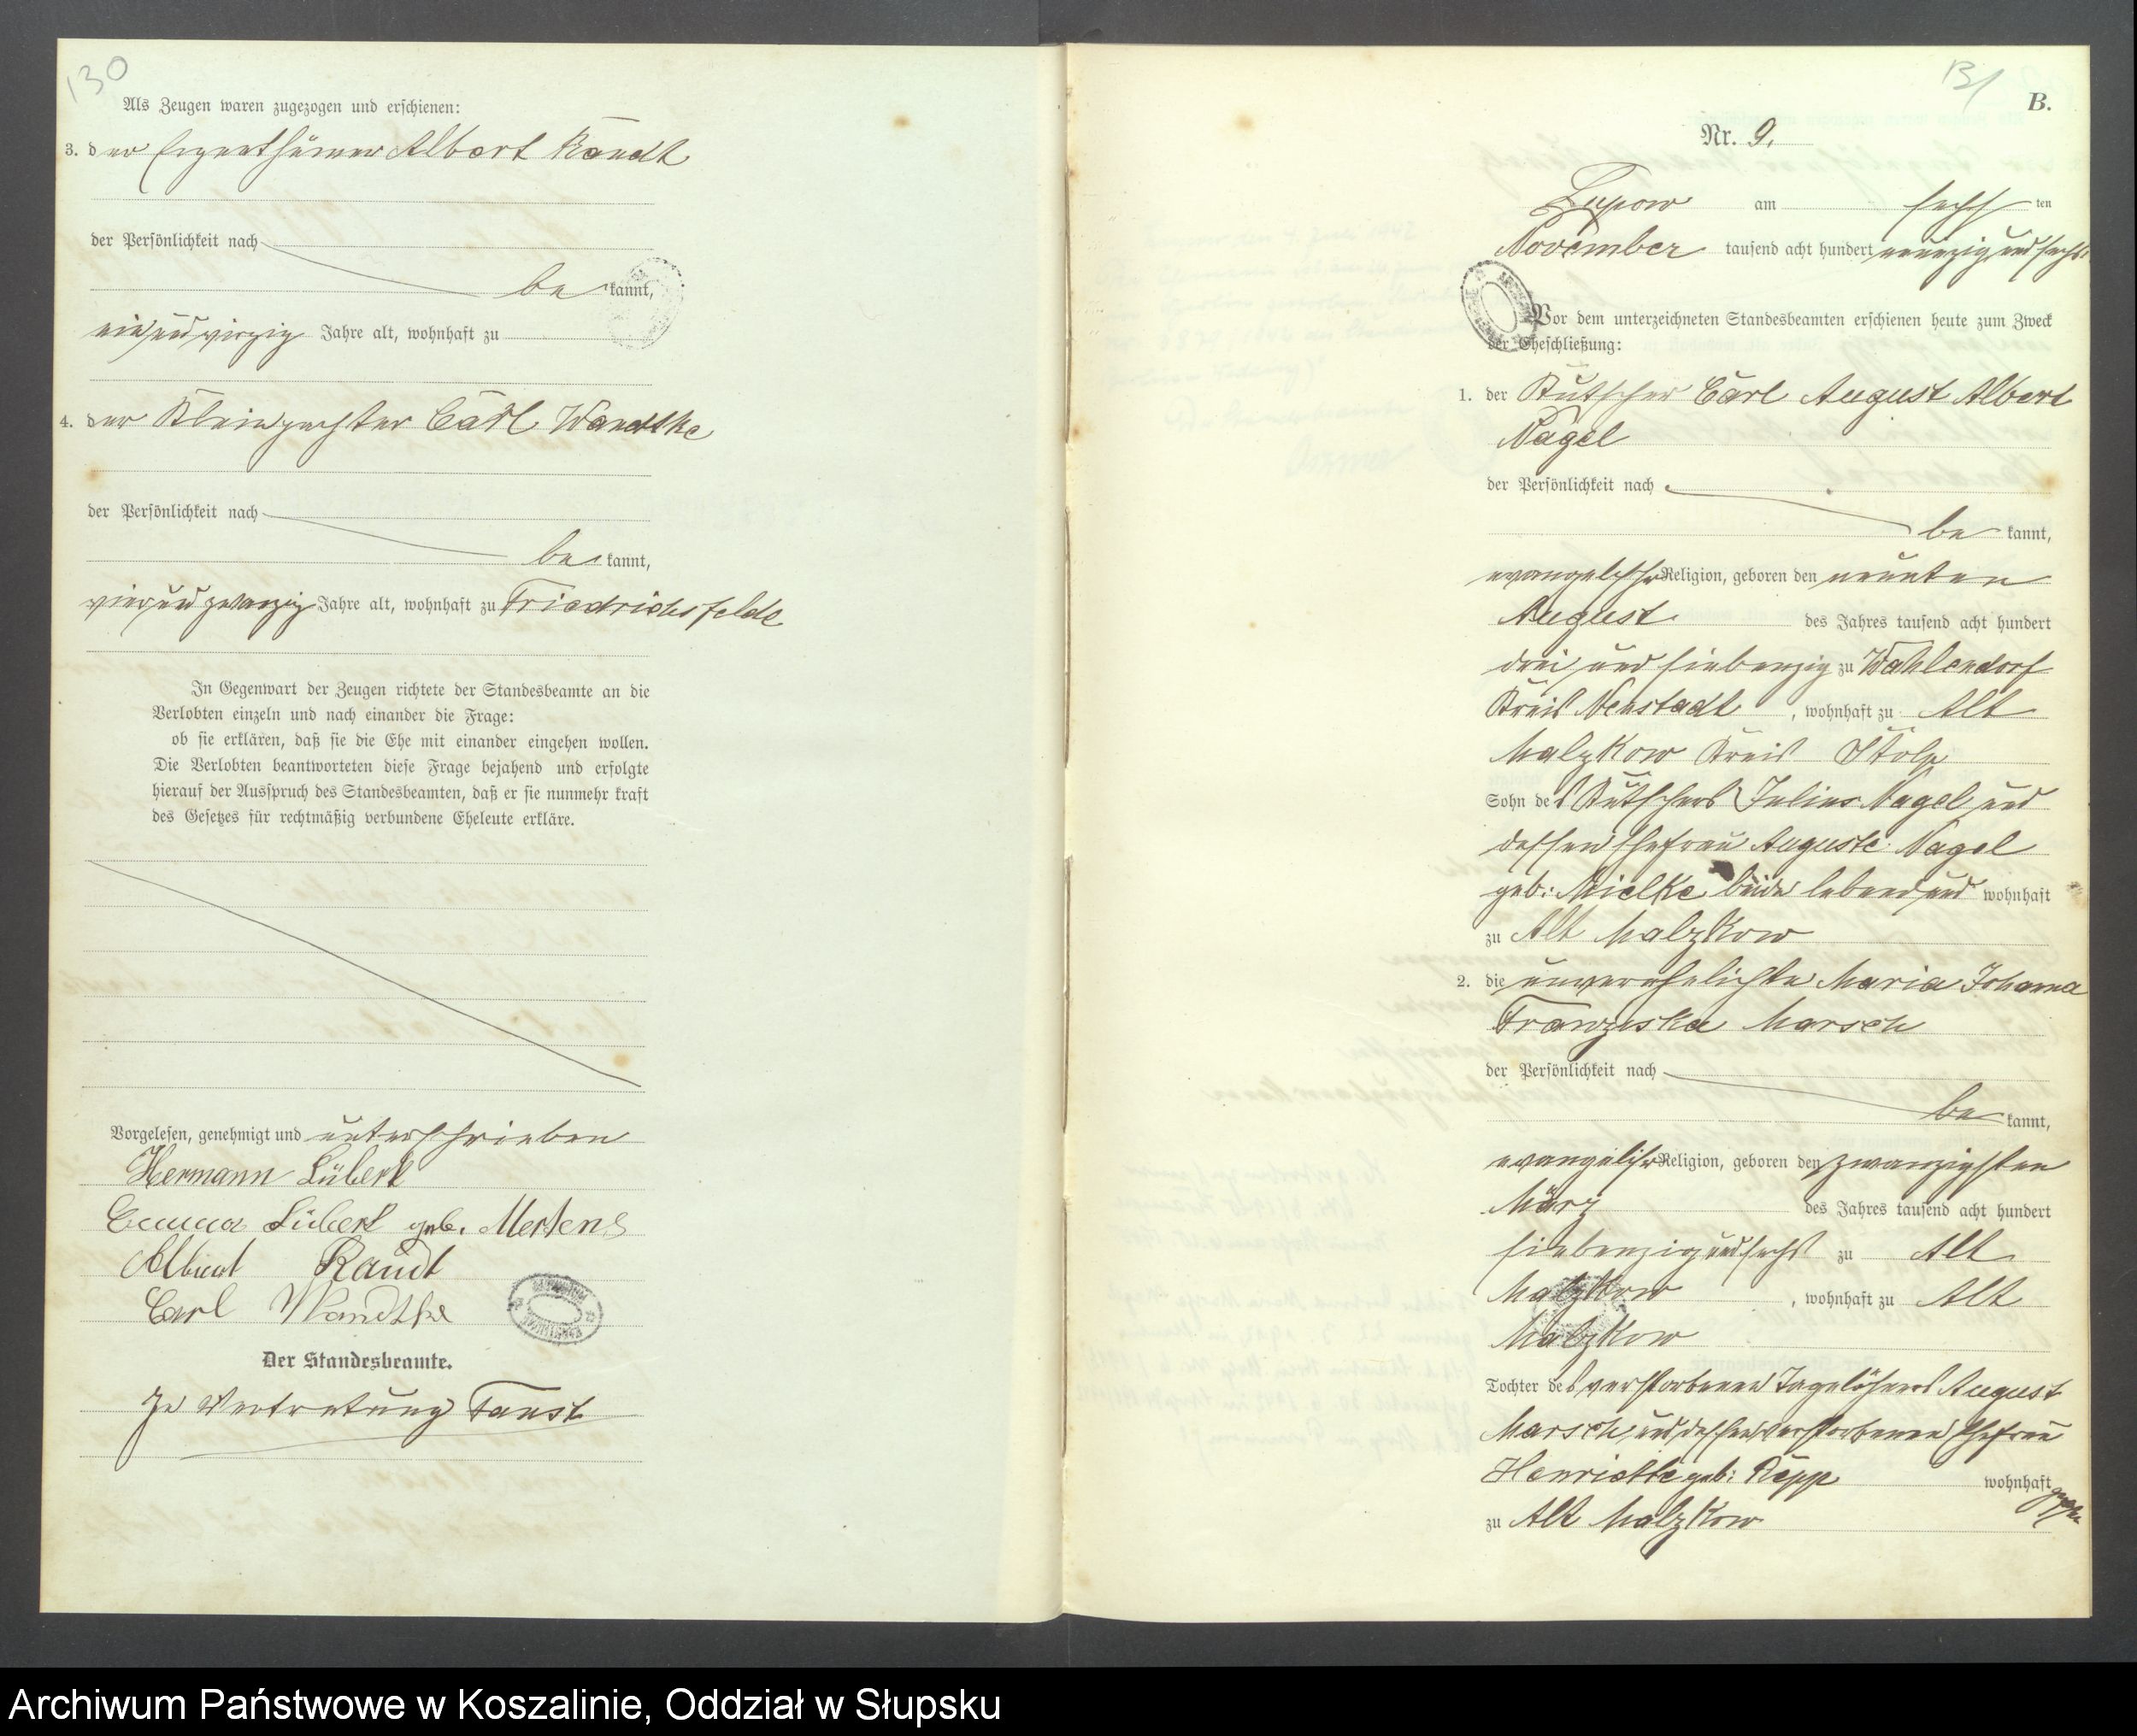 130
Als Zeugen waren zugezogen und erschienen:
3. der Eigenthümer Albert Randt
der Persönlichkeit nach
be kannt,
ein und vierzig Jahre alt, wohnhaft zu
4. der Kleinpächter Carl Wandtke
der Persönlichkeit nach
be kannt,
vier und zwanzig Jahre alt, wohnhaft zu Friedrichsfelde
In Gegenwart der Zeugen richtete der Standesbeamte an die
Verlobten einzeln und nach einander die Frage:
ob sie erklären, daß sie die Ehe mit einander eingehen wollen.
Die Verlobten beantworteten diese Frage bejahend und erfolgte
hierauf der Ausspruch des Standesbeamten, daß er sie nunmehr kraft
des Gesetzes für rechtmäßig verbundene Eheleute erkläre.
Vorgelesen, genehmigt und unterschrieben
Hermann Lübeck
Emma Lübeck geb. Mertens
Albert Randt
Carl Wandtke
Der Standesbeamte.
In Vertretung Faust
131
B.
Nr. 9.
Lupow am sechsten
November tausend acht hundert neunzig und sechs
Vor dem unterzeichneten Standesbeamten erschienen heute zum Zweck
der Eheschließung:
1. der Kutscher Carl August Albert
Nagel
der Persönlichkeit nach
be kannt,
evangelischer Religion, geboren den neunten
August des Jahres tausend acht hundert
drei und siebenzig zu Wahlendorf
Kreis Neustadt, wohnhaft zu Alt
Malzkow Kreis Stolp
Sohn des Kutschers Julius Nagel und
dessen Ehefrau Auguste Nagel
geb: Mielke beide lebend und wohnhaft
zu Alt Malzkow
2. die unverehelichte Maria Johanna
Franziska Marsch
der Persönlichkeit nach
be kannt,
evangelischer Religion, geboren den zwanzigsten
März des Jahres tausend acht hundert
siebenzig und sechs zu Alt
Malzkow, wohnhaft zu Alt
Malzkow
Tochter des verstorbenen Tagelöhners August
Marsch und dessen verstorbenen Ehefrau
Henriette geb: Repp wohnhaft
zu Alt Malzkow
Archiwum Państwowe w Koszalinie, Oddział w Słupsku